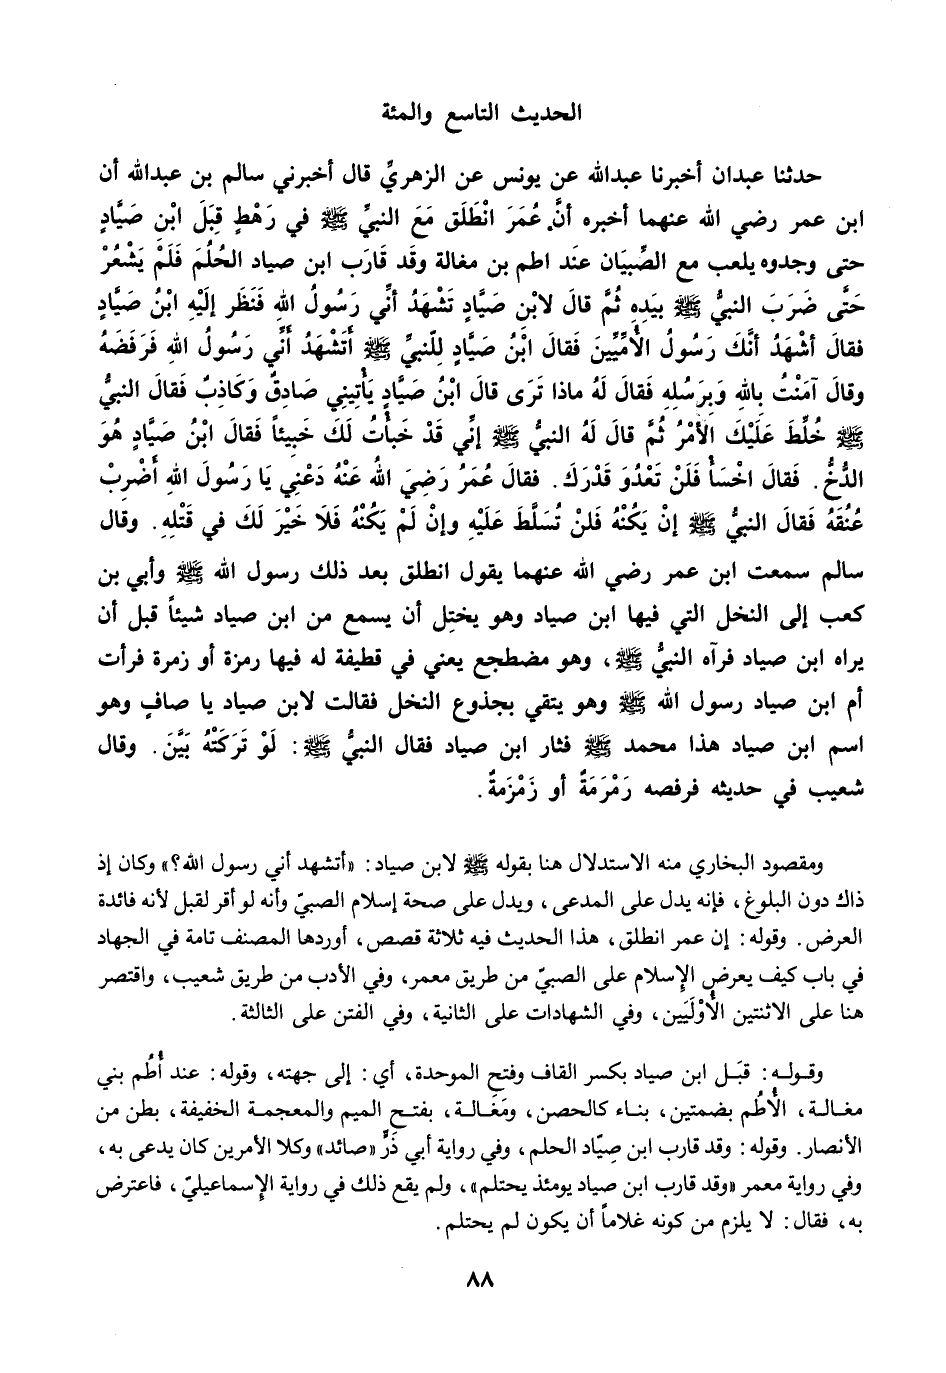 الحديث التاسع والمئة
حدثنا عبدان أخبرنا عبدالله عن يونس عن الزهريِّ قال أخبرني سالم بن عبدالله أن
ابن عمر رضي الله عنهما أخبره أنَّ عُمَرَ انْطَلَق مَعَ النبيِّ ﷺ في رَهْطٍ قِبَلَ ابْن صَيَّادٍ
حتى وجدوه يلعب مع الصِّبيَان عنَد اطم بن مغالة وقَد قَارَب ابن صياد الحُلُمَ فَلَمْ يَشْعُرْ
حَتَّى ضَرَبَ النبيُّ ﷺ بيَدِه ثُمَّ قالَ لابْن صَيَّادٍ تَشْهَدُ أنِّي رَسُولُ اللهِ فَنَظَر إلَيْهِ ابْنُ صَيَّادٍ
فقالَ أشْهَدُ أنَّكَ رَسُولُ الأُمِّيِّينَ فَقالَ ابْنُ صَيَّادٍ لِلنبيِّ ﷺ أتَشْهَدُ أنِّي رَسُولُ اللهِ فَرَفَضَهُ
وقالَ آمَنْتُ بِاللهِ وَبِرَسُلِهِ فَقالَ لَهُ ماذا تَرَى قالَ ابْنُ صَيَّادٍ يَأْتِيني صَادِقٌ وَكَاذِبٌ فَقالَ النبيُّ
ﷺ خُلِّطَ عَلَيْكَ الأَمْرُ ثُمَّ قالَ لَهُ النبيُّ ﷺ إنِّي قَدْ خَبأْتُ لَكَ خَبيئاً فَقالَ ابْنُ صَيَّادٍ هُوَ
الدُّخُّ. فَقالَ اخْسَأْ فَلَنْ تَعْدُوَ قَدْرَكَ. فقالَ عُمَرُ رَضِيَ اللهُ عَنْهُ دَعْنِي يَا رَسُولَ اللهِ أَضْرِبْ
عُنُقَهُ فَقالَ النبيُّ ﷺ إنْ يَكُنْهُ فَلنْ تُسَلَّطَ عَلَيْهِ وإنْ لَمْ يَكُنْهُ فَلَا خَيْرَ لَكَ في قَتْلِهِ. وقال
سالم سمعت ابن عمر رضي الله عنهما يقول انطلق بعد ذلك رسول الله ﷺ وأبي بن
كعب إلى النخل التي فيها ابن صياد وهو يختِل أن يسمع من ابن صياد شيئاً قبل أن
يراه ابن صياد فرآه النبيُّ ﷺ، وهو مضطجع يعني في قطيفة له فيها رمزة أو زمرة فرأت
أم ابن صياد رسول الله ﷺ وهو يتقي بجذوع النخل فقالت لابن صياد يا صافٍ وهو
اسم ابن صياد هذا محمد ﷺ فثار ابن صياد فقال النبيُّ ﷺ: لَوْ تَرَكَتْهُ بَيَّنَ. وقال
شعيب في حديثه فرفصه رَمْرَمَةٌ أو زَمْزَمةٌ.
ومقصود البخاري منه الاستدلال هنا بقوله ﷺ لابن صياد: «أتشهد أني رسول الله؟» وكان إذ
ذاك دون البلوغ، فإنه يدل على المدعى، ويدل على صحة إسلام الصبيّ وأنه لو أقر لقبل لأنه فائدة
العرض. وقوله: إن عمر انطلق، هذا الحديث فيه ثلاثة قصص، أوردها المصنف تامة في الجهاد
في باب كيف يعرض الإسلام على الصبيّ من طريق معمر، وفي الأدب من طريق شعيب، واقتصر
هنا على الاثنتين الأُوْلَيَين، وفي الشهادات على الثانية، وفي الفتن على الثالثة.
وقوله: قبَل ابن صياد بكسر القاف وفتح الموحدة، أي: إلى جهته، وقوله: عند أُطُم بني
مغالة، الأُطُم بضمتين، بناء كالحصن، ومَغَالة، بفتح الميم والمعجمة الخفيفة، بطن من
الأنصار. وقوله: وقد قارب ابن صِيّاد الحلم، وفي رواية أبي ذَرٍّ «صائد» وكلا الأمرين كان يدعى به،
وفي رواية معمر «وقد قارب ابن صياد يومئذ يحتلم»، ولم يقع ذلك في رواية الإسماعيليّ، فاعترض
به، فقال: لا يلزم من كونه غلاماً أن يكون لم يحتلم.
٨٨